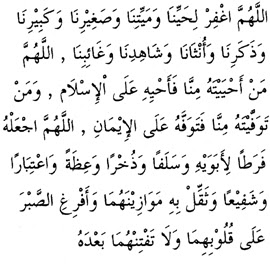 اَللّٰهُمَّ اغْفِرْ لِحَيِّنَا وَمَيِّتِنَا وَصَغِيْرِنَا وَكَبِيْرِنَا
وَذَكَرِنَا وَأُنْثَانَا وَشَاهِدِنَا وَغَائِبِنَا , اَللّٰهُمَّ
مَنْ أَحْيَيْتَهُ مِنَّا فَأَحْيِهِ عَلَى اْلإِسْلَامِ , وَمَنْ
تَوَفَّيْتَهُ مِنَّا فَتَوَفَّهُ عَلَى الإِيْمَانِ , اَللّٰهُمَّ اجْعَلْهُ
فَرَطًا ِلأَبَوَيْهِ وَسَلَفًا وَذُخْرًا وَعِظَةً وَاعْتِبَارًا
وَشَفِيْعًا وَثَقِّلْ بِهِ مَوَازِيْنَهُمَا وَأَفْرِغِ الصَّبْرَ
عَلَى قُلُوْبِهِمَا وَلَا تَفْتِنْهُمَا بَعْدَهُ